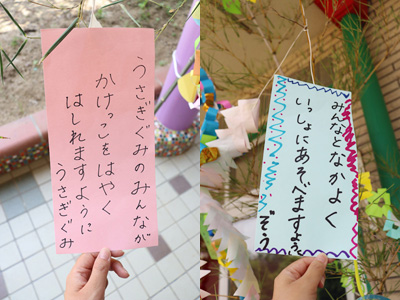 うさぎぐみのみんなが
かけっこをはやく
はしれますように
うさぎぐみ
みんなとなかよく
いっしょにあそべますように
ぞう